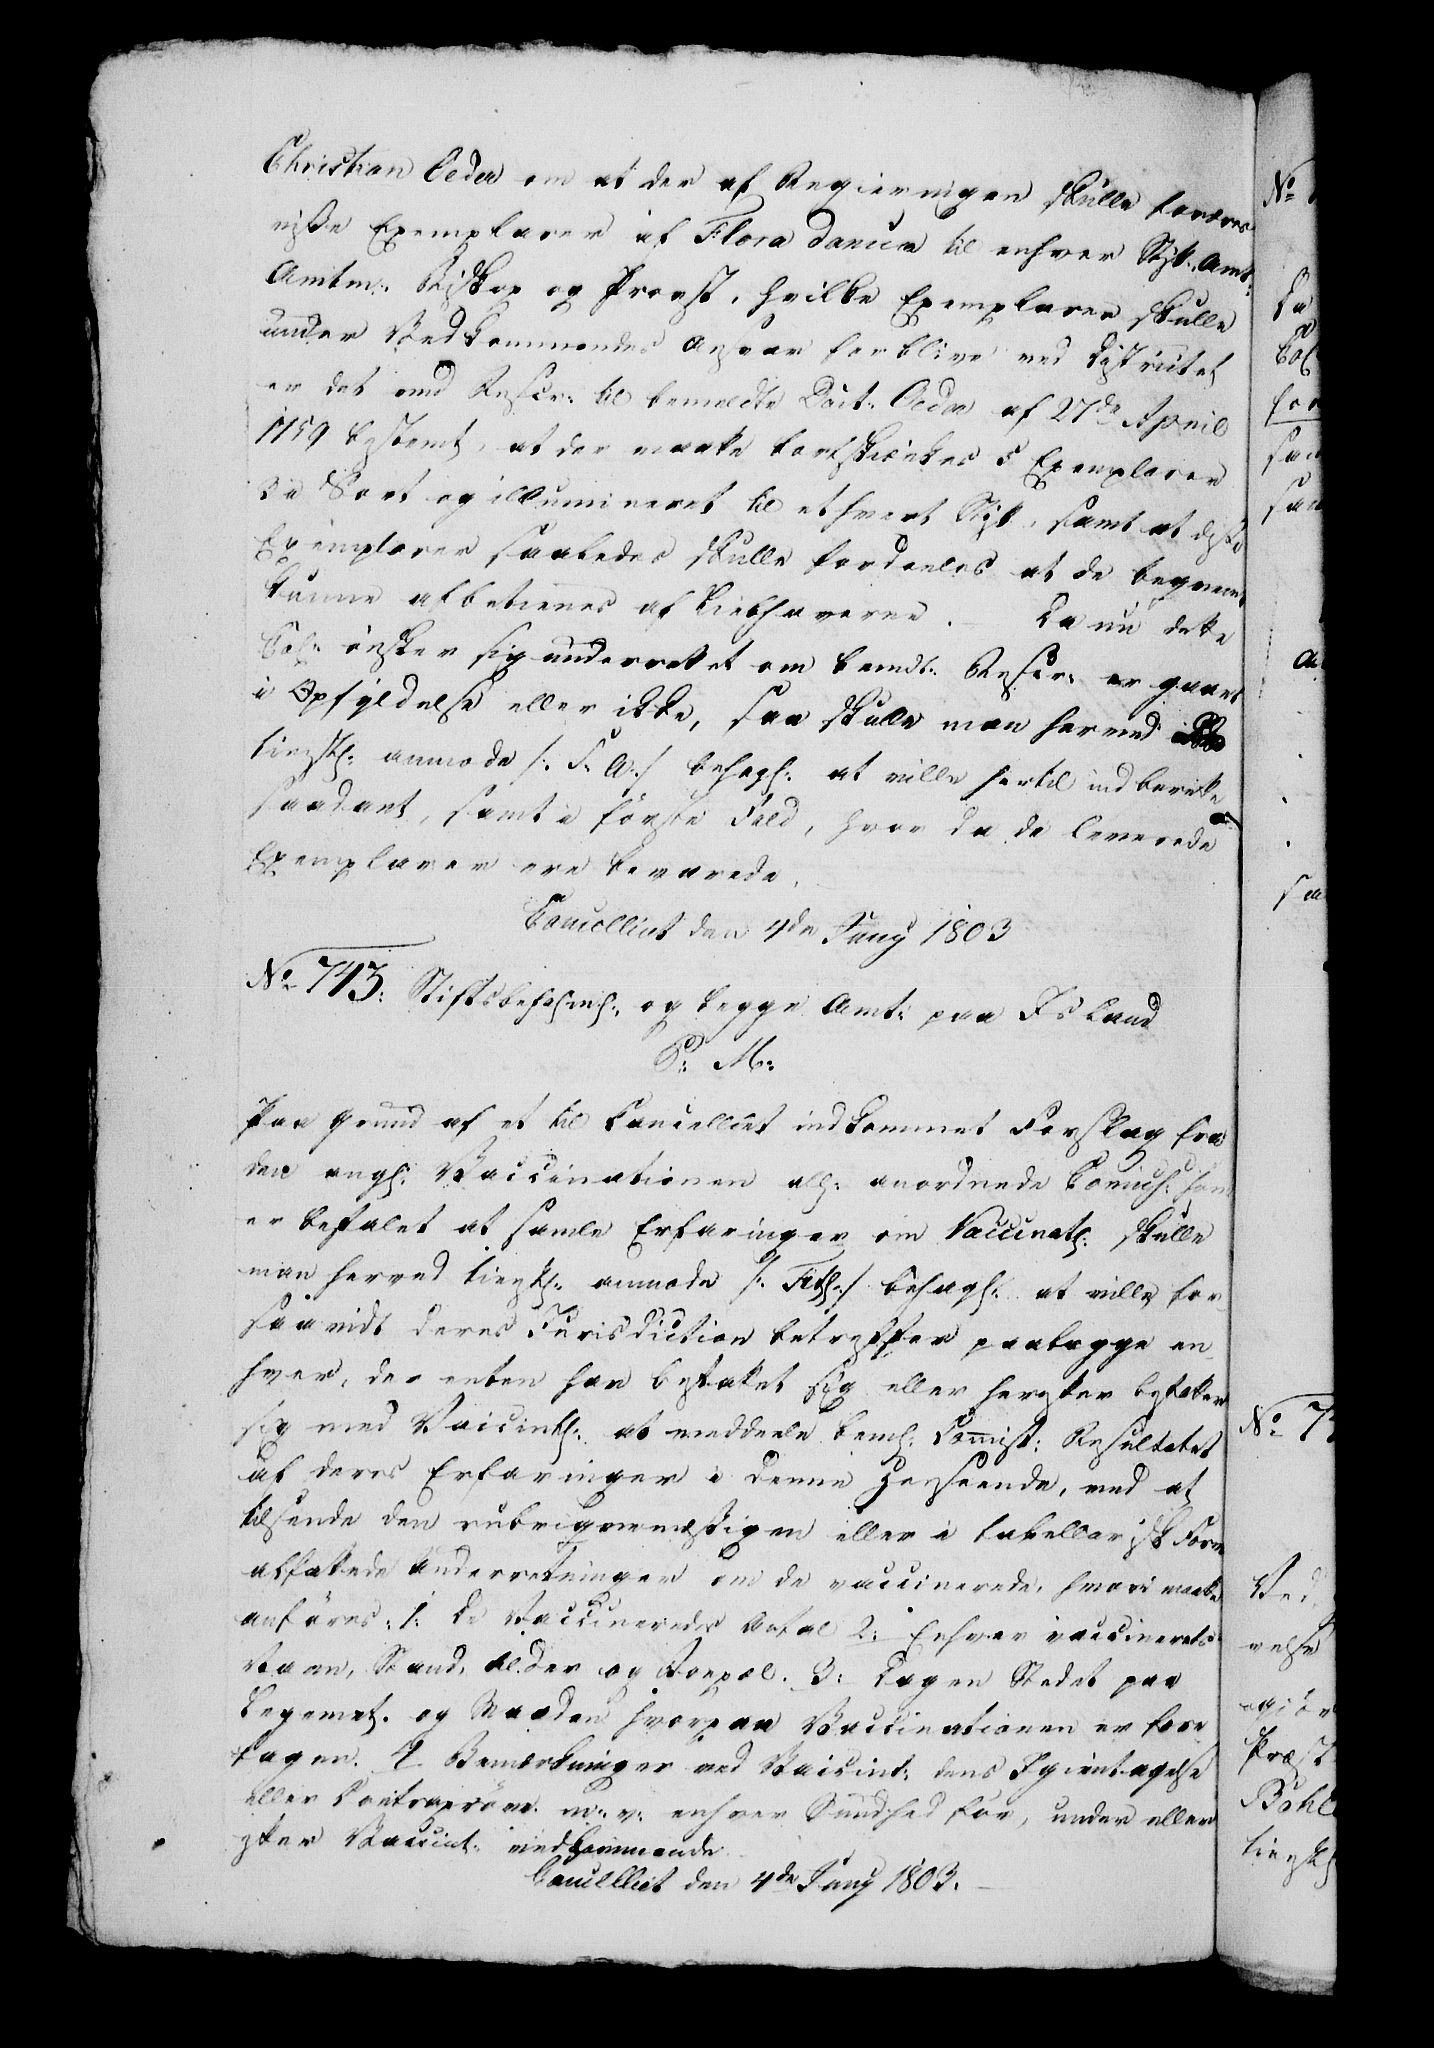 Christian Oeder om at der af Regieringen skulle foræres
visse Exemplarer af Flora danica til enhver Stift. Amt:
Amtm:, Biskop og Provst, hvilke Exemplarer skulle
under Vedkommendes Ansvar forblive ved Districtet
er det ved Rescr: til bemeldte Doct: Oeder af 27de April
1759 bestemt, at der maatte bortskienkes 5 Exemplarer
De Sort og illumineret til ethvert Stift, samt at disse
Exemplarer saaledes skulle fordeeles at de beqvemt
kunne afbetienes af Liebhaverne. Da nu dette
Col: ønsker sig underrettet om bemdt: Rescr: er gaaet
i Opfyldelse eller ikke, saa skulle man herved
tienstl: anmode /: T: A:/ behagl: at ville hertil indberette
saadant, samt i første Fald, hvor da de leverede
Exemplarer ere bevarede.
Cancelliet den 4de Juny 1803
No 743: Stiftsbefahlingsm:, og begge Amt: paa Island
P: M:
Paa Grund af et til Cancelliet indkommet Forslag fra
den angl: Vaccinationen allern: anordnede Commiss: som
er befalet at samle Erfaringer om Vaccinat: skulle
man herved tienstl: anmode /: Titl:/ behagl: at ville for
saavidt deres Jurisdiction betreffer paalegge en
hver, der enten har befattet sig eller herefter befatter
sig med Vaccinat: at meddeele beml: Commiss: Resultatet
af deres Erfaringer i denne Henseende, ved at
tilsende den rubriqvemessigen eller i tabellarisk Form
affattede Underretninger om de vaccinerede, hvori maatte
anføres: 1: De Vaccineredes Antal 2: Enhver vaccineretes
Navn, Stand, Alder og Bopæl. 3: Dagen Stedet paa
Legemet, og Maaden hvorpaa Vaccinationen er fore
tagen. 4 Bemærkninger ved Vaccinat: dens Igientagelse
eller Contraprøver m: v: enhver Sundhed før, under eller
efter Vaccinat: vedkommende
Cancelliet den 4de Juny 1803.